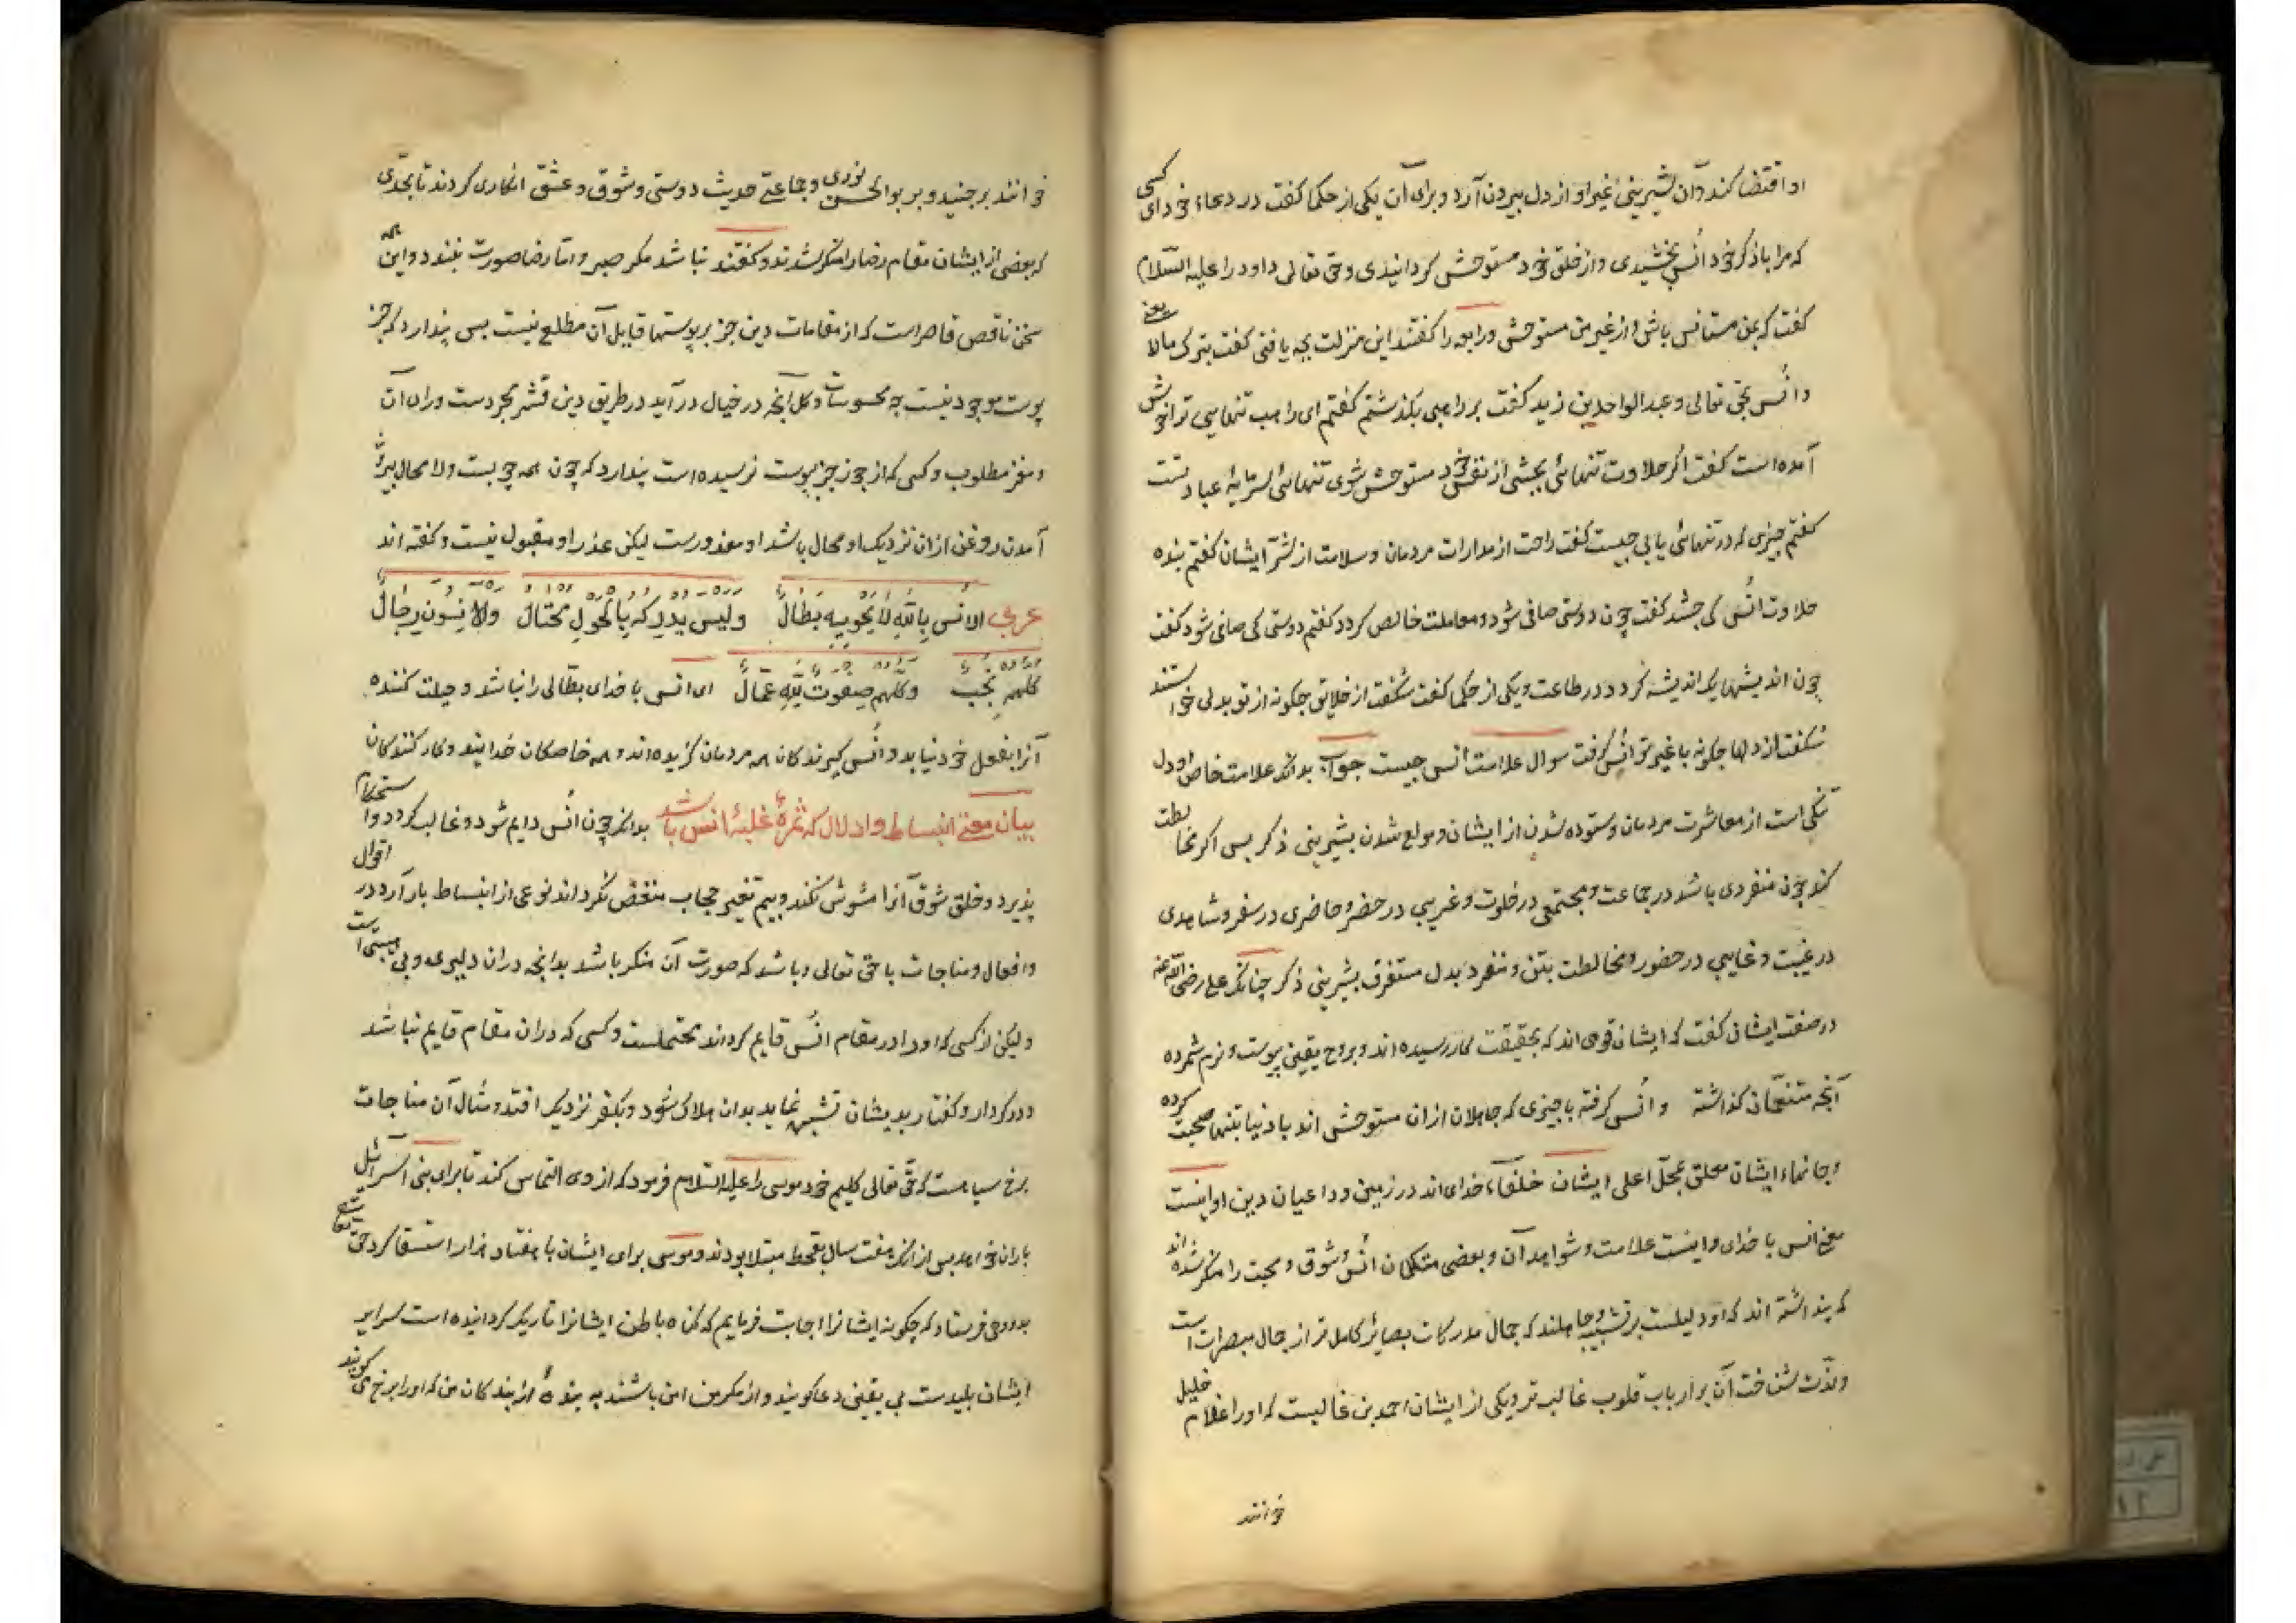 او اقتضا کند و آن شیرینی غیر او از دل بیرون آرد و برای آن یکی از حکما کفت در دعاء خود ای کسی
که مرا با ذکر خود اُنس بخشیدی و از خلق خود مستوحش کردانیدی و حق تعالی داود را علیه السّلام
کفت که بمن مستانس باش و از غیر من مستوحش و رابعه را کفتند این منزلت بچه یافتی کفت بترک مالا یعنی
و اُنس بحق تعالی و عبدالواحد بن زید کفت بر راهبی بکذشتم کفتم ای راهب تنهایی ترا خوش
آمده است کفت اکر حلاوت تنهائی بچشی از نفس خود مستوحش شوی تنهائی سرمایهٔ عبادتست
کفتم چیزی که در تنهائی یابی چیست کفت راحت از مدارات مردمان و سلامت از شرّ ایشان کفتم بنده
حلاوت اُنس کی چشد کفت چون دوستی صافی شود و معاملت خالص کردد کفتم دوستی کی صافی شود کفت
چون اندیشها یک اندیشه کردد در طاعت و یکی از حکما کفت شکفت از خلایق چکونه از تو بدلی خواستند
شکفت از دلها چکونه با غیر تو اُنس کرفت سوال علامت اُنس چیست جواب بدانکه علامت خاص او دل
تنکی است از معاشرت مردمان و ستوده شدن از ایشان و مولع شدن بشیرینی ذکر پس اکر مخالطت
کند چون منفردی باشد در جماعت و مجتمعی در خلوت و غریبی در حضر و حاضری در سفر و شاهدی
در غیبت و غایبی در حضور و مخالطت بتن و منفرد بدل مستغرق بشیرینی ذکر چنانکه علی رضی الله عنه
در صفت ایشان کفت که ایشان قومی اند که بحقیقت کار رسیده اند و بروح یقین پیوسته و نرم شمرده
آنچه متنعّمان کذاشته و اُنس کرفته با چیزی که جاهلان ازان مستوحش اند با دنیا بتنها صحبت کرده
و جانهاء ایشان معلق بمحلّ اعلی ایشان خلفاء خدای اند در زمین و داعیان دین او اینست
معنی انس با خدای و اینست علامت و شواهد آن و بعضی متکلمان اُنس و شوق و محبت را منکر شده اند
که پنداشته اند که او دلیلست بر تشبیه و جاهلند که جمال مدرکات بصائر کامل تر از جمال مبصراتست
و لذّت شناخت آن بر ارباب قلوب غالب تر و یکی از ایشان احمد بن غالبست که او را غلام خلیل
خوانند
خوانند بر جنید و بر بوالحسن نوری و جماعتی حدیث دوستی و شوق و عشق انکاری کردند تا بحدّی
که بعضی از ایشان مقام رضا را منکر شدند و کفتند نباشد مکر صبر و امّا رضا صورت نبندد و این همه
سخن ناقص قاصر است که از مقامات دین جز بر پوستها قایل آن مطلع نیست پس پندارد که جز
پوست موجود نیست چه محسوسات و کل آنچه در خیال در آید در طریق دین قشر مجردست و رای آن
و مغز مطلوب و کسی که از جوز جز پوست نرسیده است پندارد که چون همه چوبست و لا محال بیرون
آمدن روغن ازان نزدیک او محال باشد او معذورست لیکن عذر او مقبول نیست و کفته اند
عربی الاُنس بِاللّٰهِ لا یحویهِ بَطّالٌ ولیس یدرِکه بِالحَولِ مُحتالٌ والآنِسُونَ رِجالٌ
کلهم نُجُبٌ وکلّهم صِفوت لِلّٰهِ عُمّالٌ ای انس با خدای بطّالی را نباشد و حیلت کننده
آنرا بفعل خود نیابد و اُنس کیرندکان همه مردمان کزیده اند و همه خاصکان خدایند و کار کنندکان
بیان معنی انبساط و ادلال که ثمرهٔ غلبهٔ انس باشد بدانکه چون اُنس دایم شود و غالب کردد و استحکام
پذیرد و قلق شوق آنرا مشوش نکند و بیم تغیر حجاب منغّص نکرداند نوعی از انبساط بار آرد در اقوال
و افعال و مناجات با حق تعالی و باشد که صورت آن منکر باشد بدانچه دران دلیری و بی هیبتی است
ولیکن از کسی که او را در مقام اُنس قایم کرداند محتملست و کسی که دران مقام قایم نباشد
و در کردار و کفتار بدیشان تشبیه نماید بدان هلاک شود و بکفر نزدیک افتد و مثال آن مناجات
برخ سیاهست که حق تعالی کلیم خود موسی را علیه السّلام فرمود که از وی التماس کند تا برای بنی اسرائیل
باران خواهد پس ازانکه هفت سال بقحط مبتلا بودند و موسی برای ایشان با هفتاد هزار استسقا کرد حق تعالی
بدو وحی فرستاد که چکونه ایشانرا اجابت فرمایم که کناه باطن ایشانرا تاریک کردانیده است سرایر
ایشان پلیدست بی یقینی دعا کویند و از مکر من ایمن باشند به بندهٔ از بندکان من که او را برخ کویند